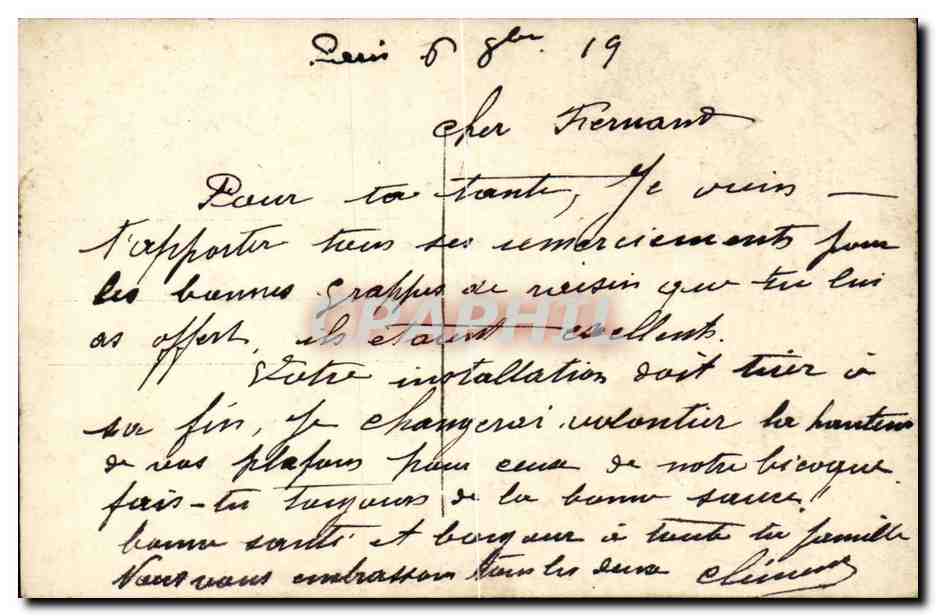 Paris 6 9bre 19
cher Fernand
Pour ta tante, Je viens
t'apporter tous ses remerciements pour
les bonnes grappes de raisin que tu lui
as offert, ils étaient excellents.
Votre installation doit tirer à
sa fin, Je changerai volontier la hauteur
de vos plafons pour ceux de notre bicoque
fais-tu toujours de la bonne sauce!
bonne santé et bonjour à toute ta famille
Nous vous embrassons tous les deux Clément
CPAPHIL